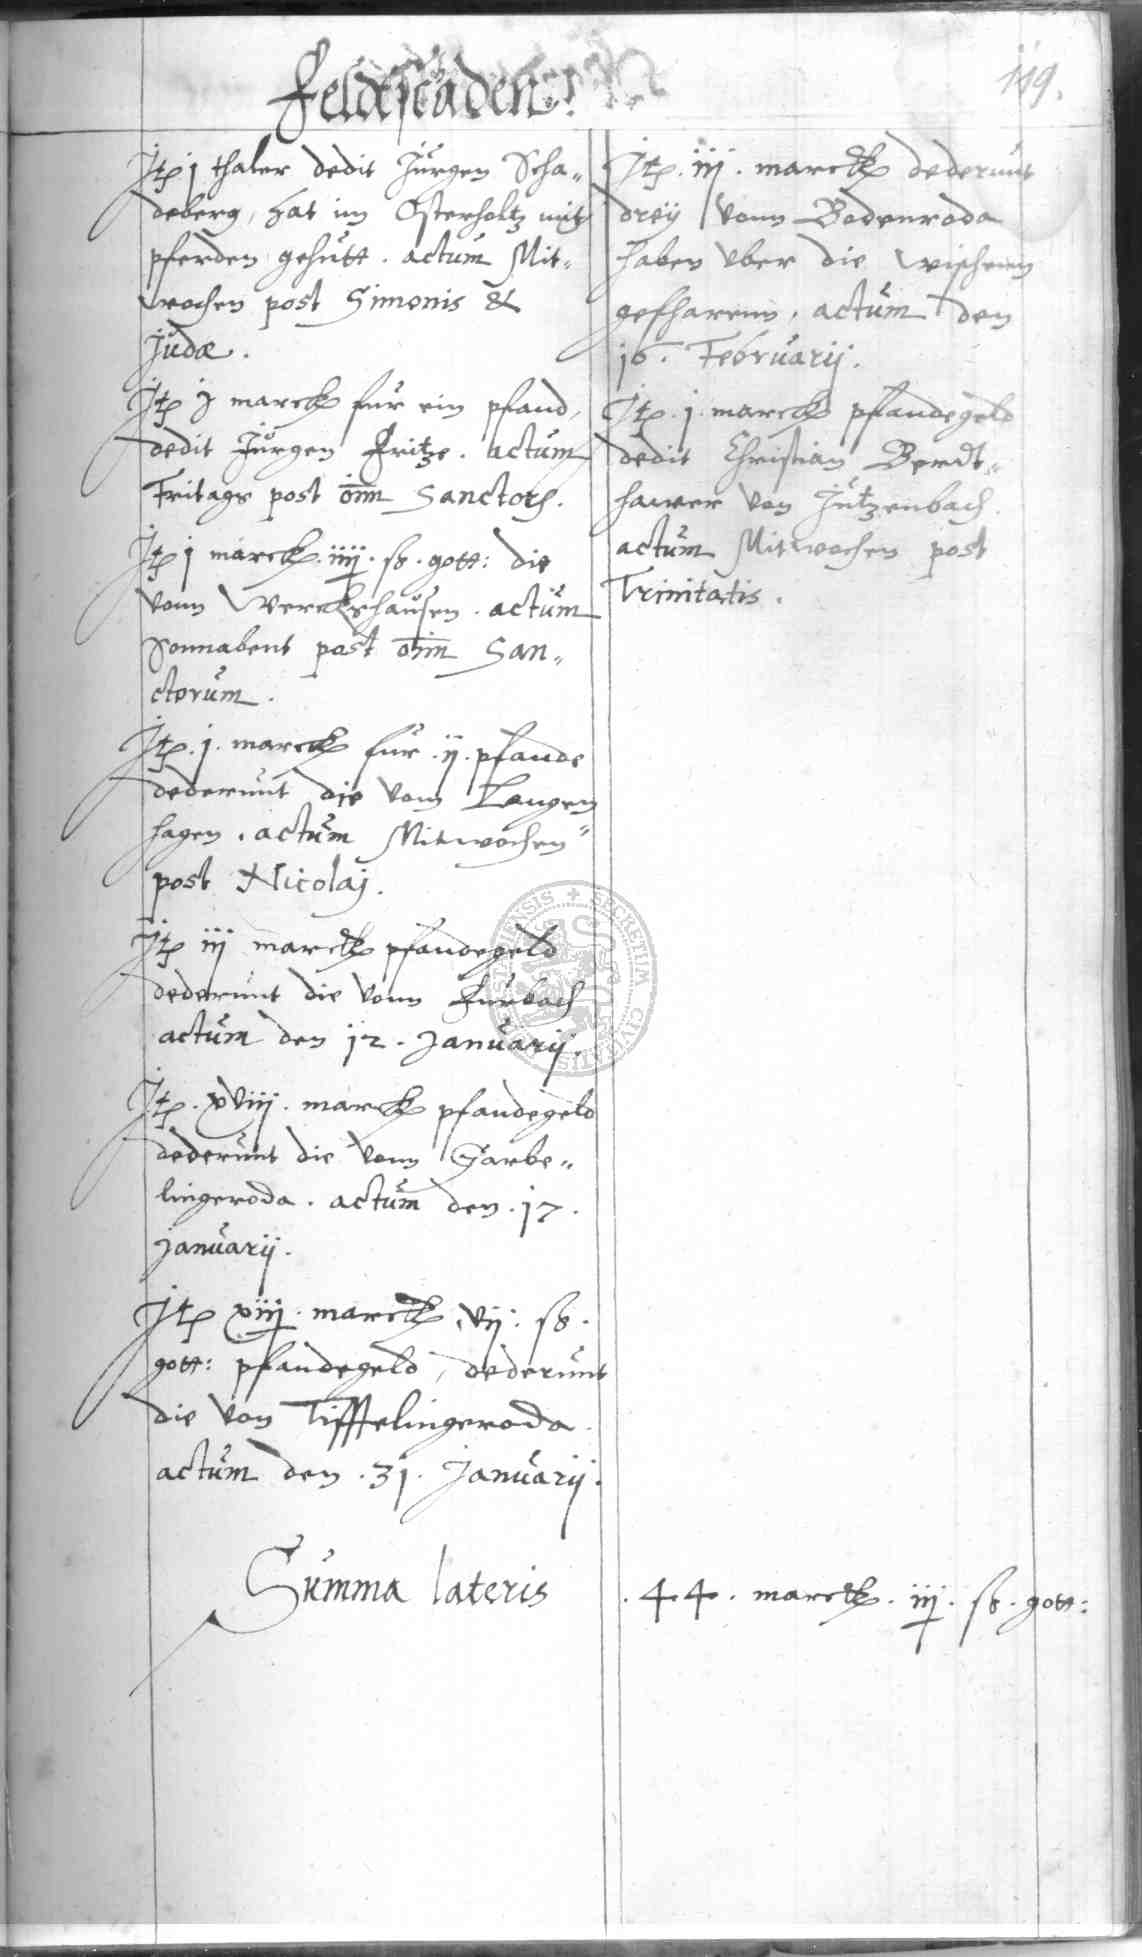 119.
Feldtschaden:
Jtem j thaler dedit Jürgen Scha„
deberg, hat im Osterholtz mitt
pferden gehütt. actum Mit„
wochen post Simonis &
Judæ.
Jtem j marck für ein pfand,
dedit Jürgen Fritze. actum
Fritags post oim Sanctorum.
Jtem j marck. iiij. ß. gott: die
vonn Werckshausen. actum
Sonnabent post oim San„
ctorum.
Jtem. j. marck für .ij. pfande
dederunt die vom Langen„
hagen. actum Mitwochen
post Nicolaj.
Jtem iij marck pfandegeld
dederunt die vonn Furbach
actum den 12. Januarij.
Jtem. xviij. marck pfandegeld
dederunt die vonn Garbe„
lingeroda. actum den .17.
januarij.
Jtem xiij. marck vij. ß.
gott: pfandegeld, dederunt
die von Tifftelingeroda.
actum den .31. Januarij.
Jtem. iij. marck dederunt
dreÿ vonn Bodenroda
haben vber die wischenn
gefharenn, actum den
16. Februarij.
Jtem. j. marck pfandegeld
dedit Christian Berdt„
hawer von Jützenbach.
actum Mitwochen post
Trinitatis.
Summa lateris .44. marck. iij. ß. gott:
SECRETUM CIVITATIS